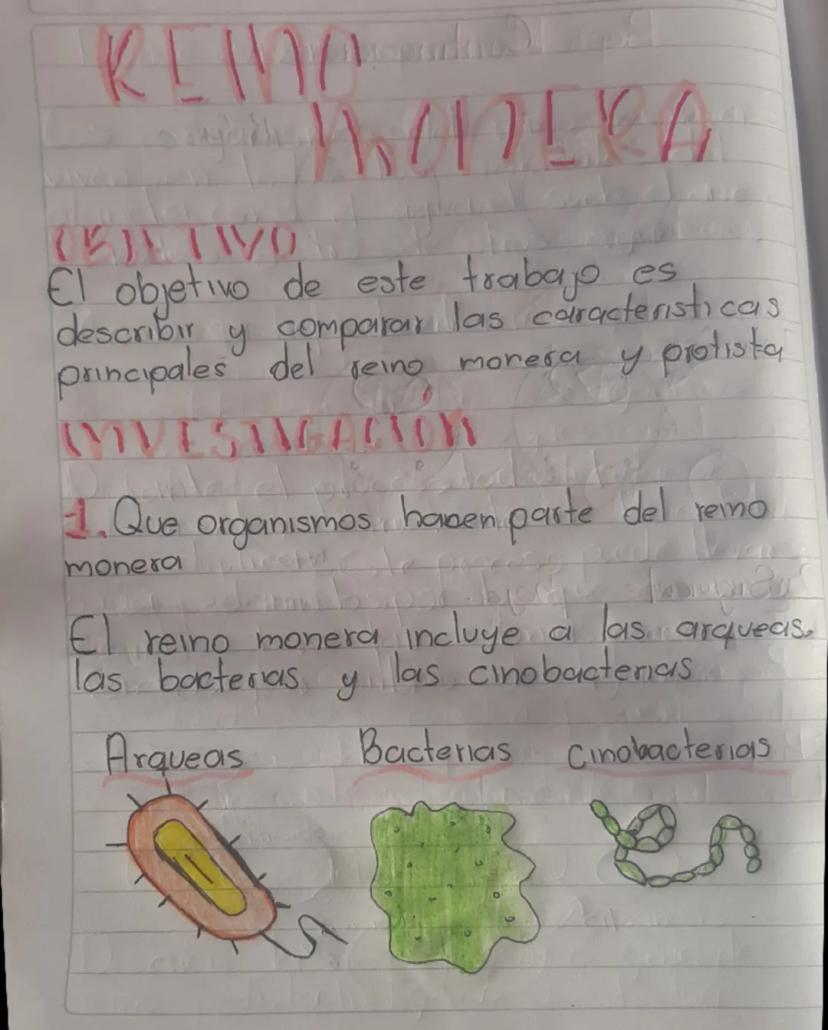 REINO
MONERA
OBJETIVO
El objetivo de este trabajo es
describir y comparar las caracteristicas
principales del reino monera y protista
INVESTIGACIÓN
1. Que organismos hacen parte del reino
monera
El reino monera incluye a las arqueas.
las bacterias y las cinobacterias
Arqueas Bacterias cinobacterias